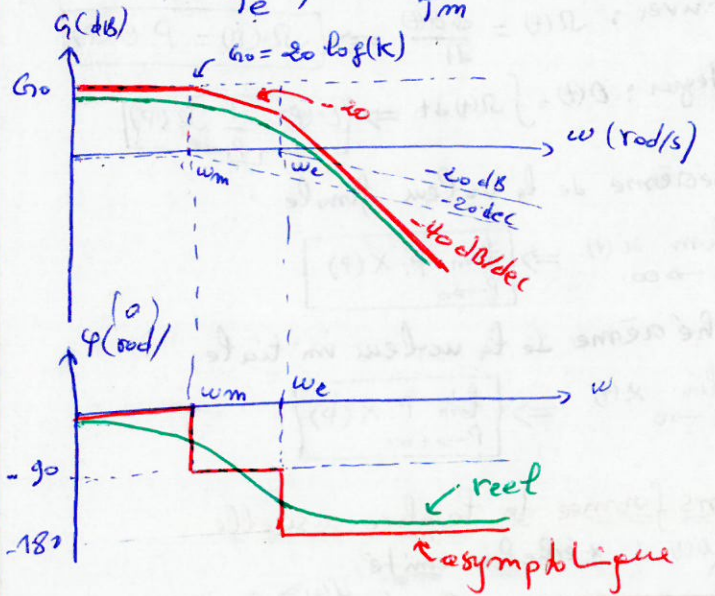 Te Tm
G(dB)
G₀ = 20 log(K)
G₀
-20
ω (rad/s)
ωm ωe
-20 dB
-20 dec
-40 dB/dec
(°)
φ(rad/
ωm ωe ω
-90
reel
-180
asymptotique